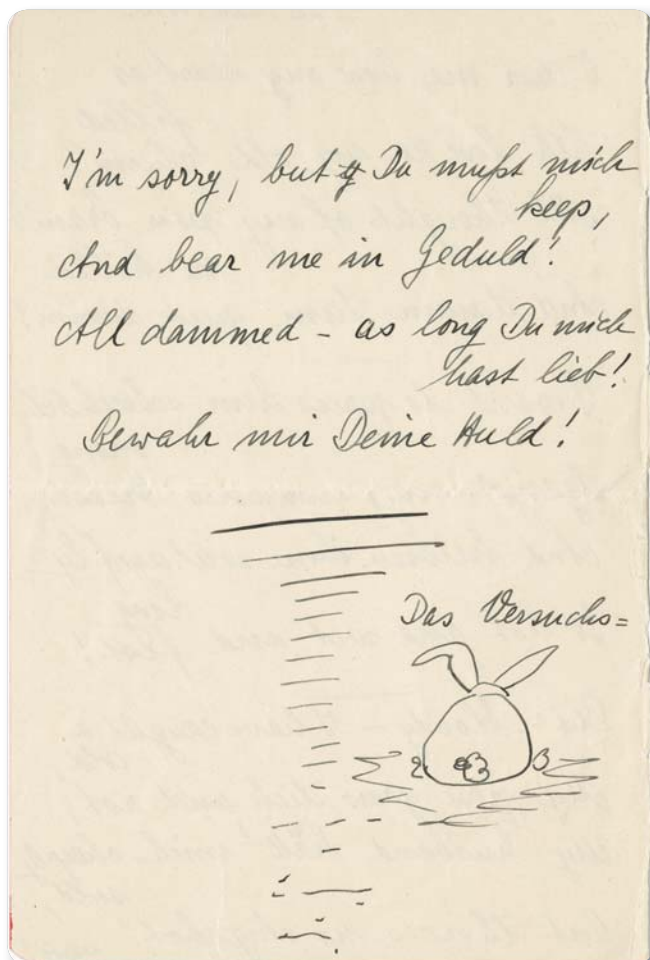 I'm sorry, but Du mußt mich
keep,
And bear me in Geduld!
All dammed - as long Du mich
hast lieb!
Bewahr mir Deine Huld!
Das Versuchs=